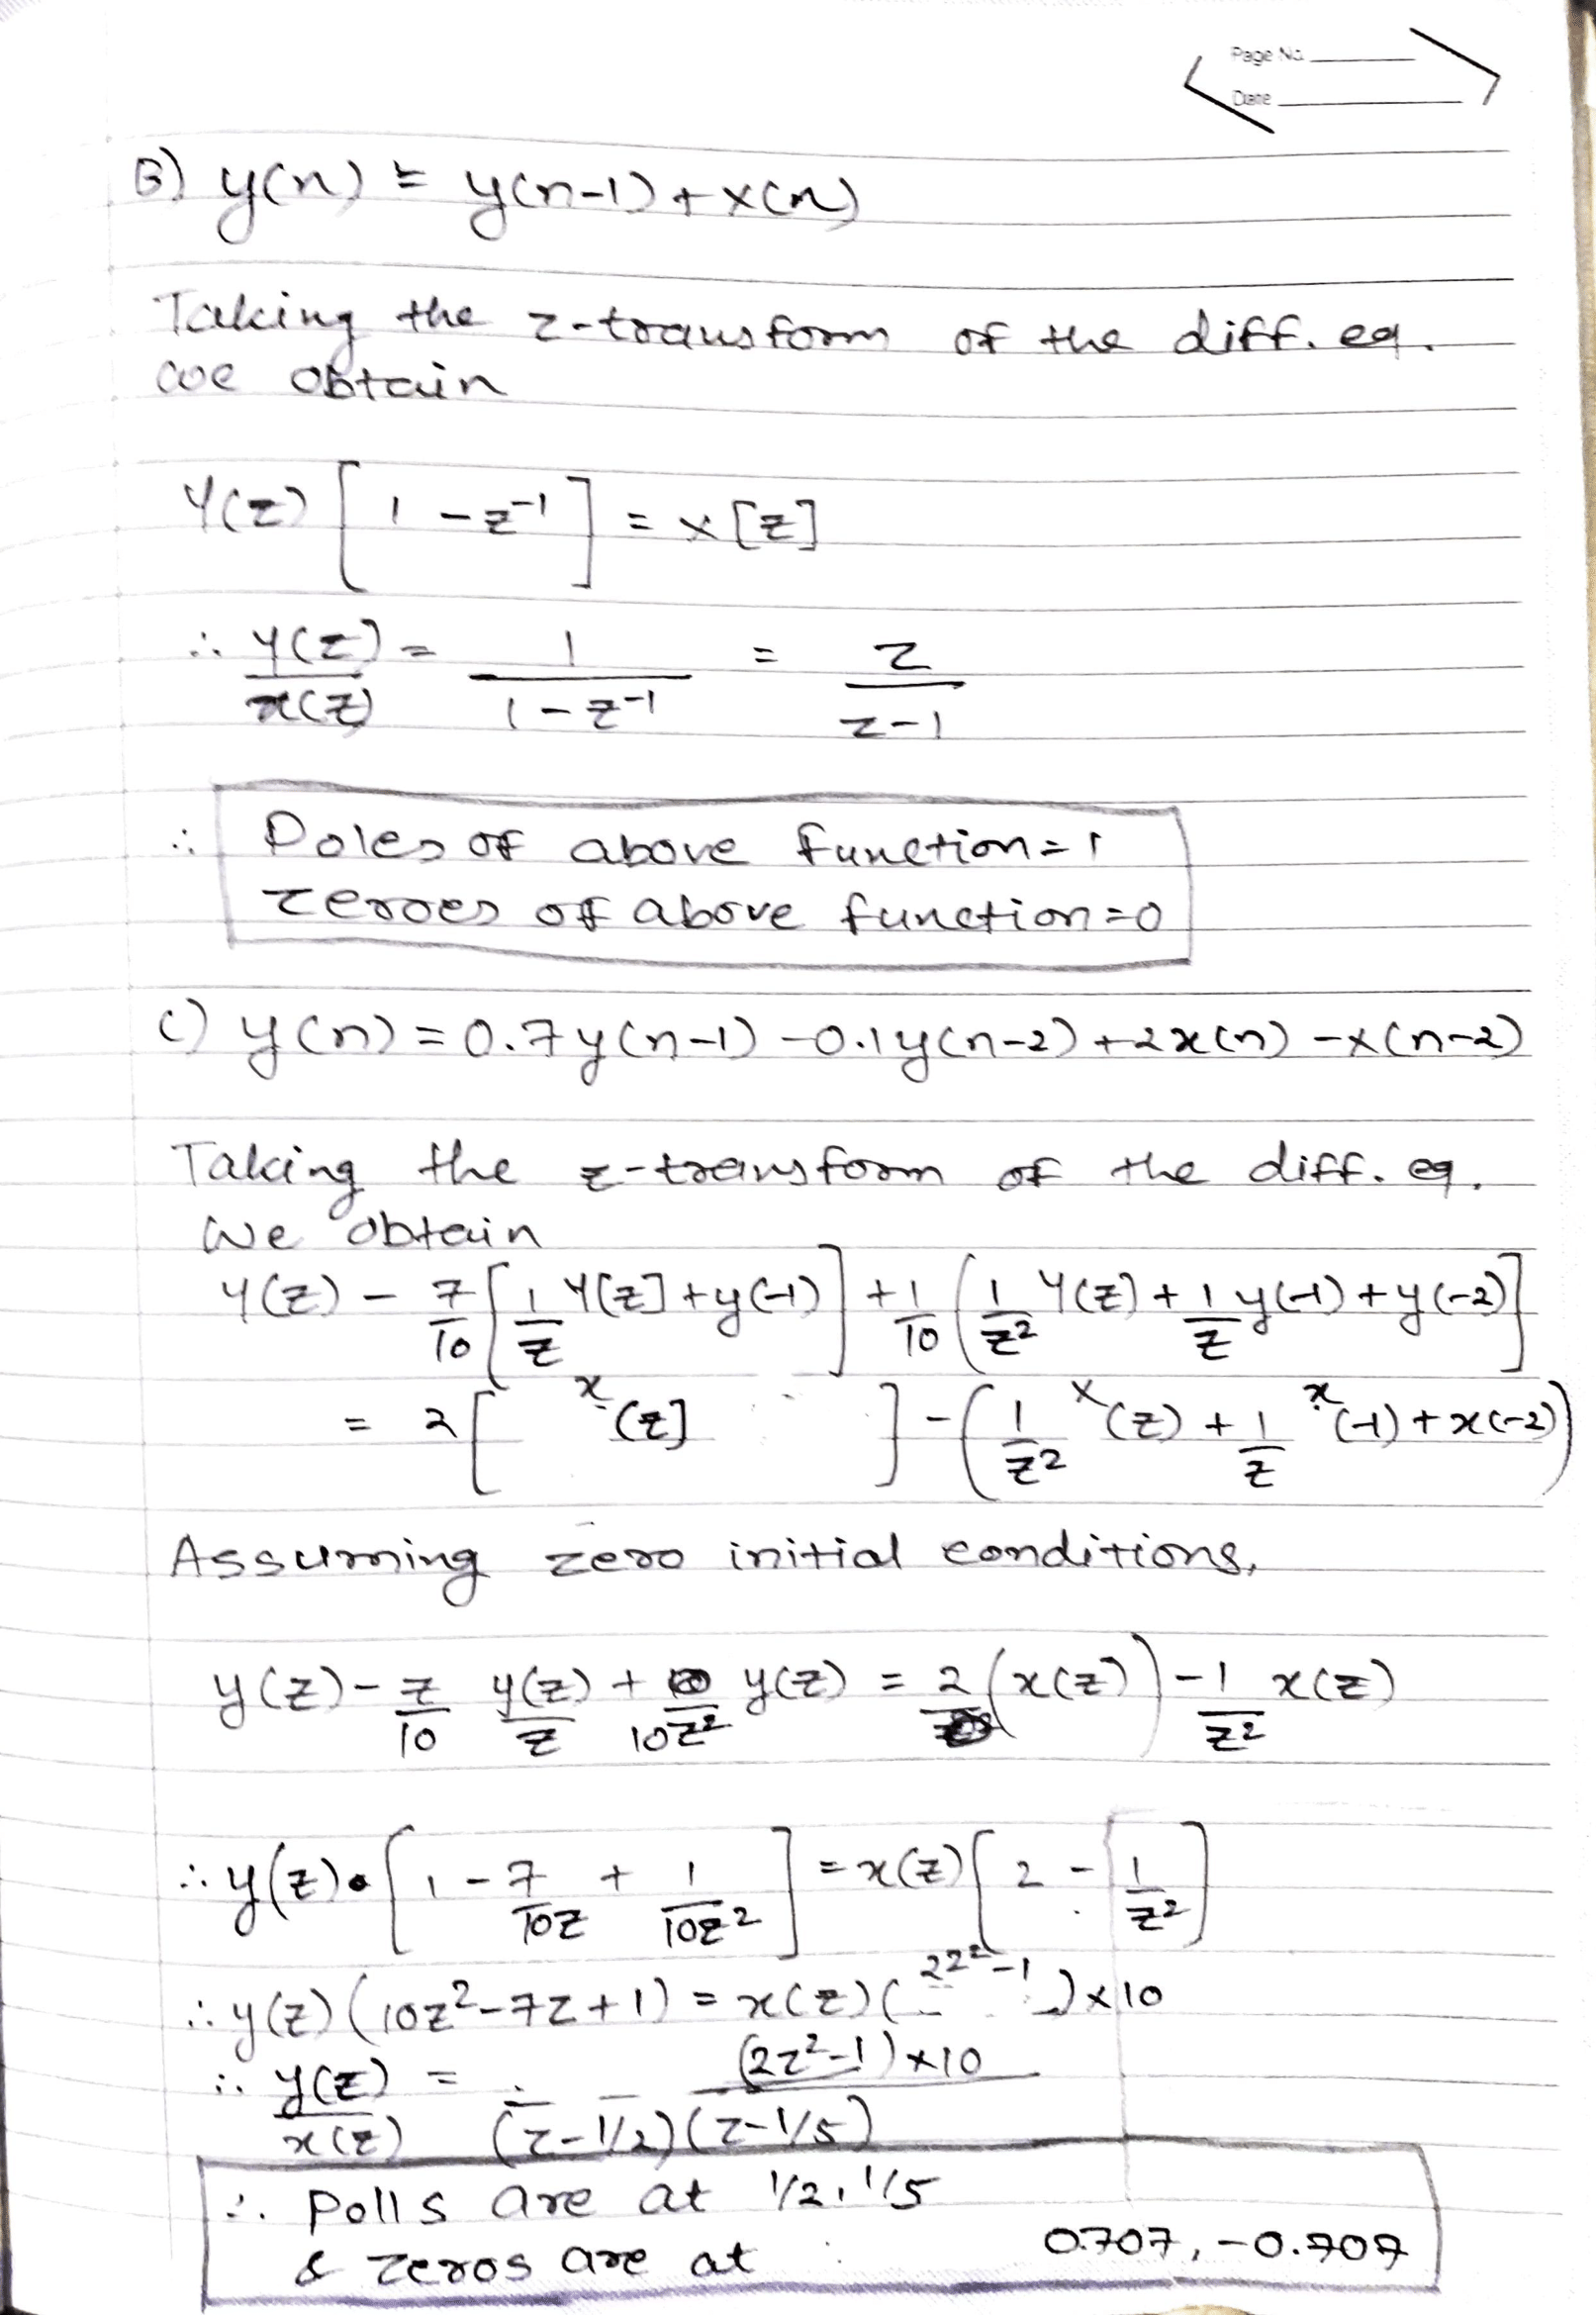 Page No.
Date
B) y(n) = y(n-1) + x(n)
Taking the z-transform of the diff. eq.
we obtain
Y(z) [ 1 - z⁻¹ ] = x[z]
∴ Y(z)/x(z) = 1/(1 - z⁻¹) = z/(z-1)
∴ Poles of above function = 1
zeroes of above function = 0
C) y(n) = 0.7y(n-1) - 0.1y(n-2) + 2x(n) - x(n-2)
Taking the z-transform of the diff. eq.
we obtain
Y(z) - 7/10 [ 1/z Y[z] + y(-1) ] + 1/10 ( 1/z² Y(z) + 1/z y(-1) + y(-2) ]
= 2 [ x(z] ] - ( 1/z² x(z) + 1/z x(-1) + x(-2) )
Assuming zero initial conditions,
y(z) - 7/10 y(z)/z + 1/10z² y(z) = 2 (x(z)) - 1/z² x(z)
∴ y(z) [ 1 - 7/10z + 1/10z² ] = x(z) [ 2 - 1/z² ]
∴ y(z) (10z² - 7z + 1) = x(z) ( 2z² - 1 ) × 10
∴ y(z)/x(z) = (2z² - 1) × 10 / (z - 1/2)(z - 1/5)
∴ Polls are at 1/2, 1/5
& zeros are at 0.707, -0.707